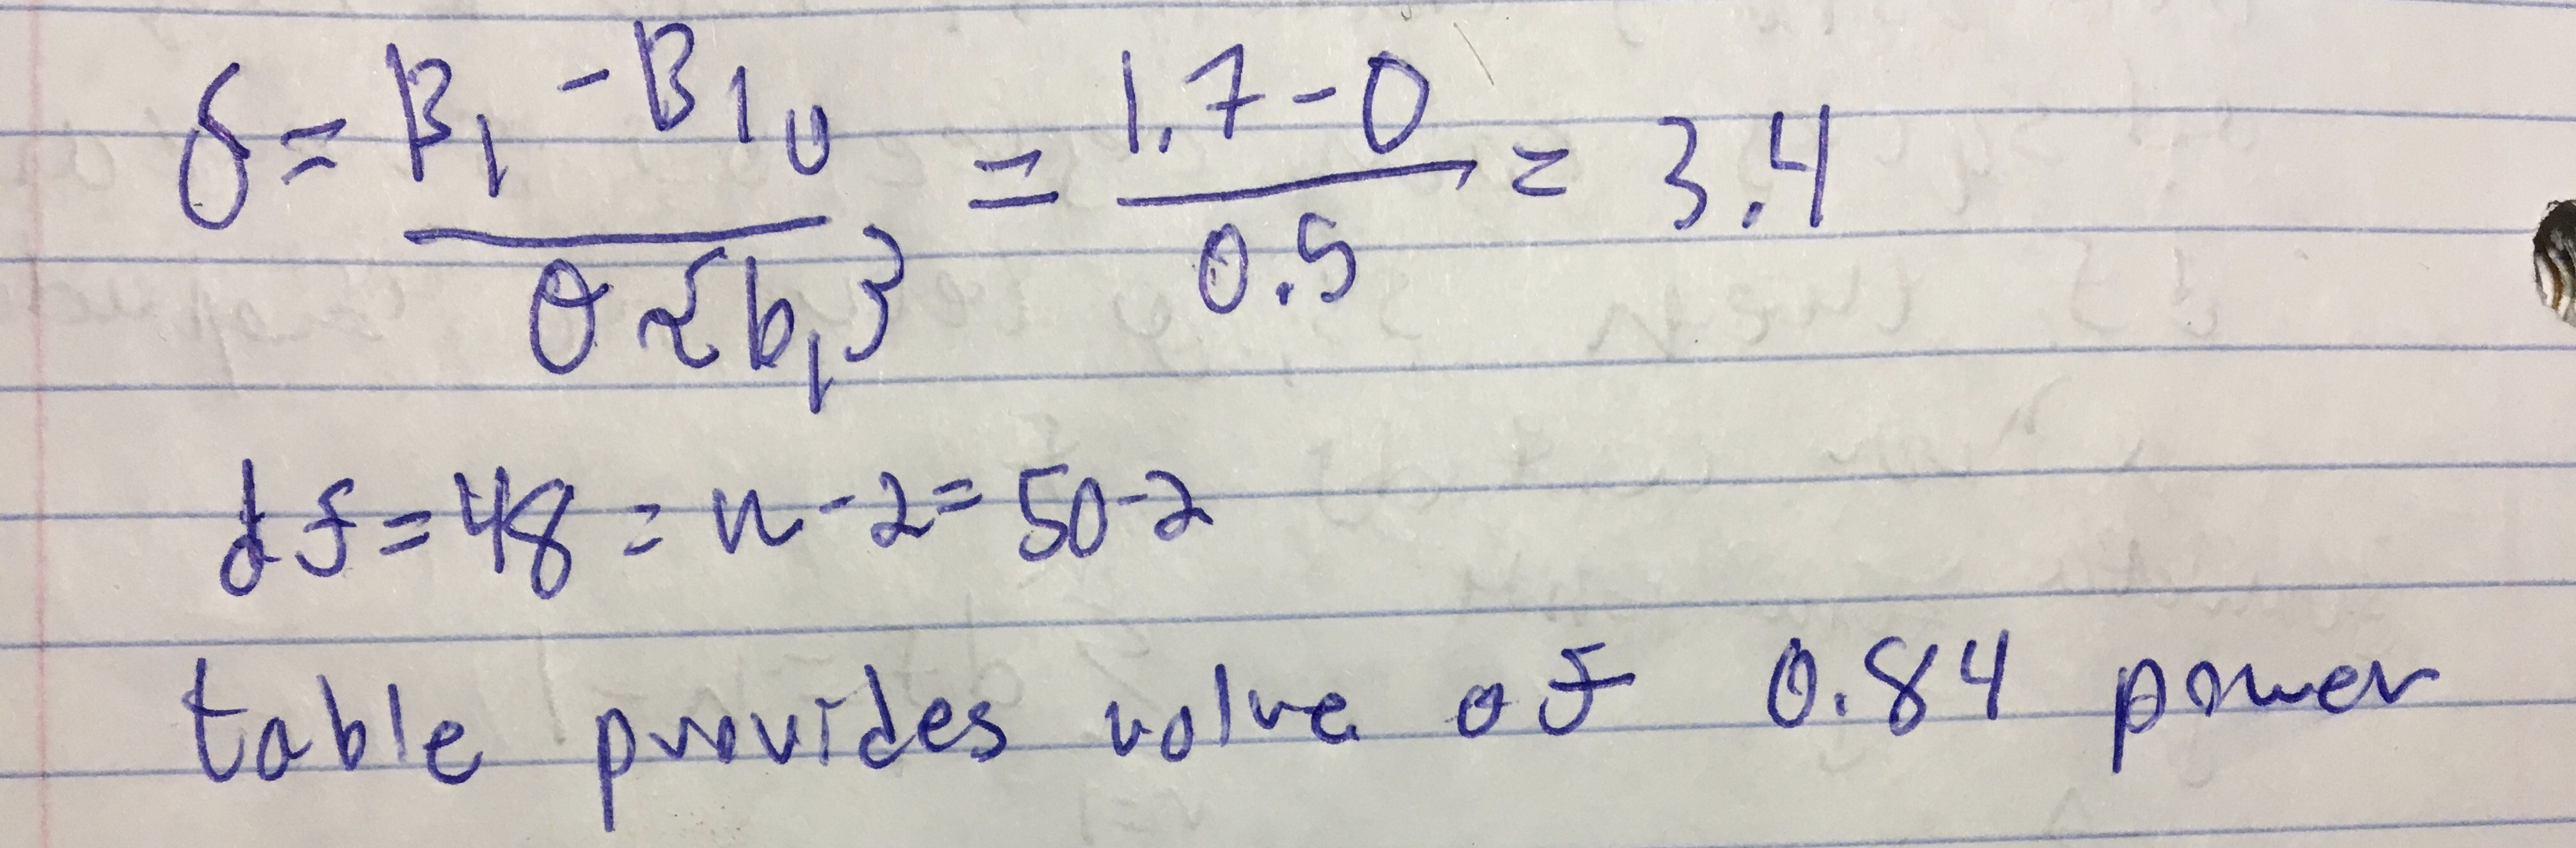 δ = (β₁ - β₁₀) / σ{b₁} = (1.7 - 0) / 0.5 = 3.4
df = 48 = n - 2 = 50 - 2
table provides value of 0.84 power